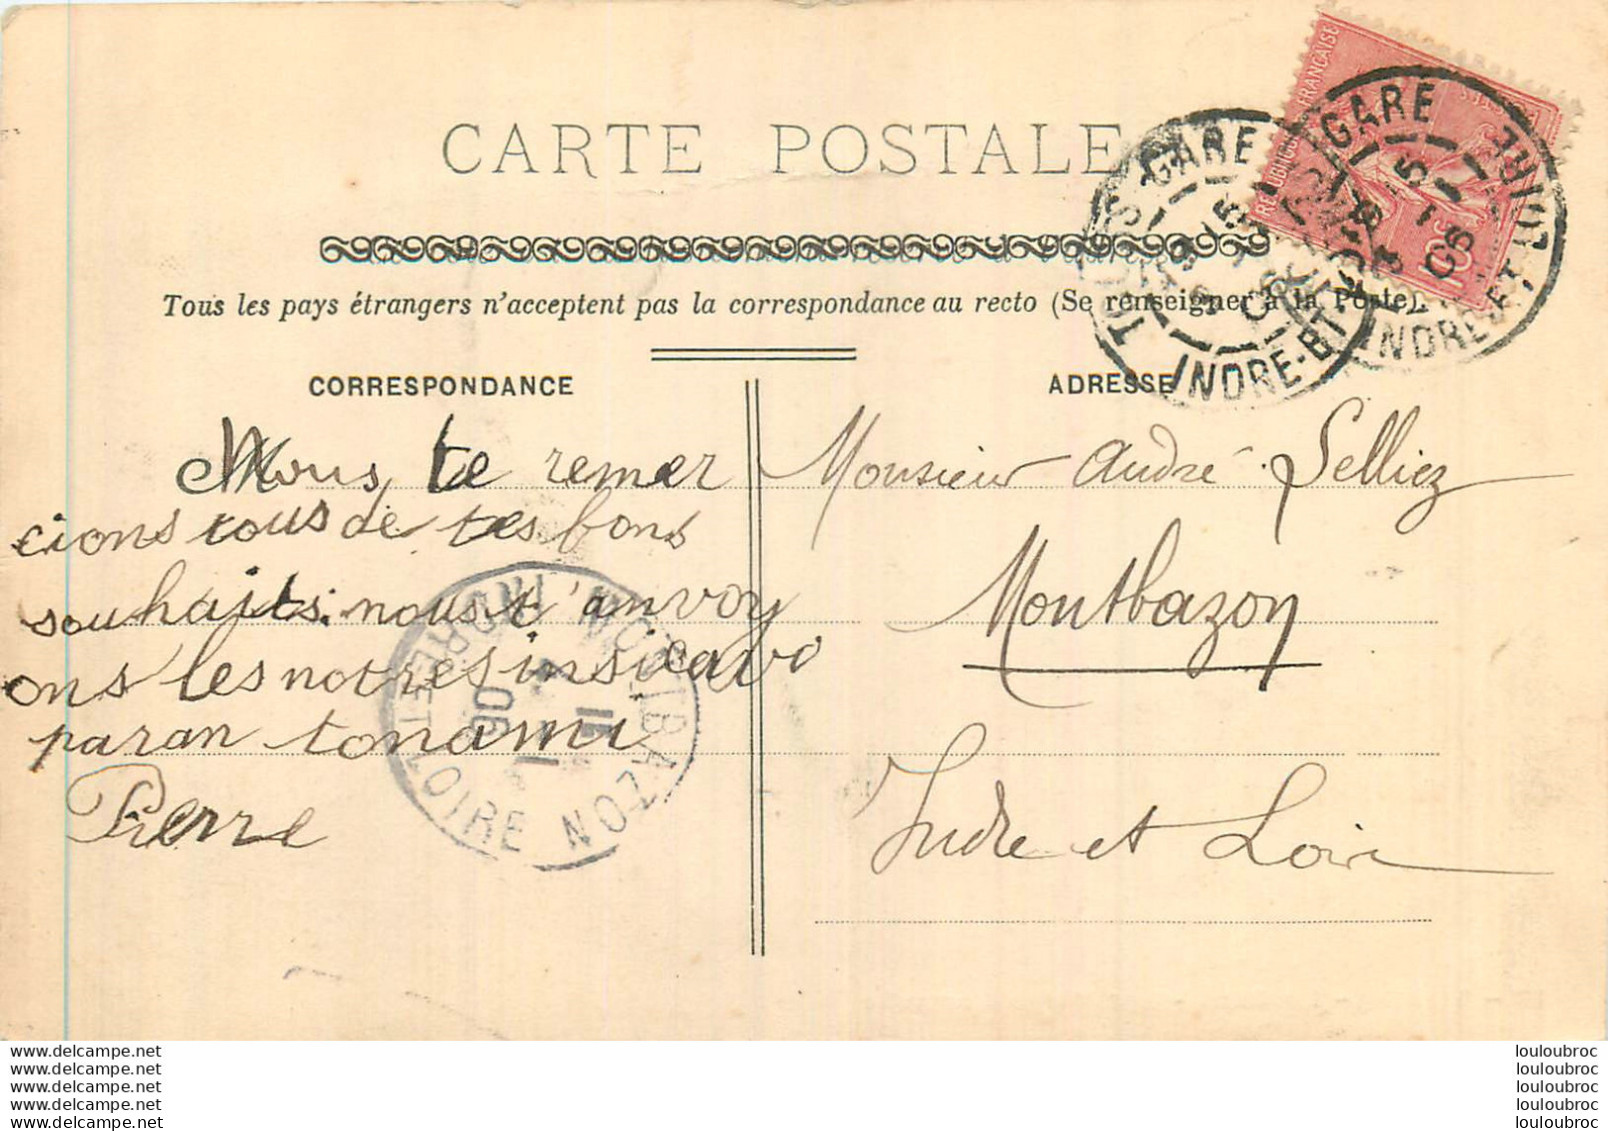 CARTE POSTALE
Tous les pays étrangers n'acceptent pas la correspondance au recto (Se renseigner à la Poste).
CORRESPONDANCE
Nous te remer
cions tous de tes bons
souhaits. nous t'anvoy
ons les notres insi
paran tonami
Pierre
ADRESSE
Monsieur André Selliez
Montbazon
Indre et Loire
REPUBLIQUE FRANCAISE
10c
TOURS-GARE
15
06
INDRE-ET-LOIRE
GARE
15
06
INDRE-ET-LOIRE
MONTBAZON
15
1
06
INDRE-ET-LOIRE
www.delcampe.net
www.delcampe.net
www.delcampe.net
www.delcampe.net
www.delcampe.net
louloubroc
louloubroc
louloubroc
louloubroc
louloubroc